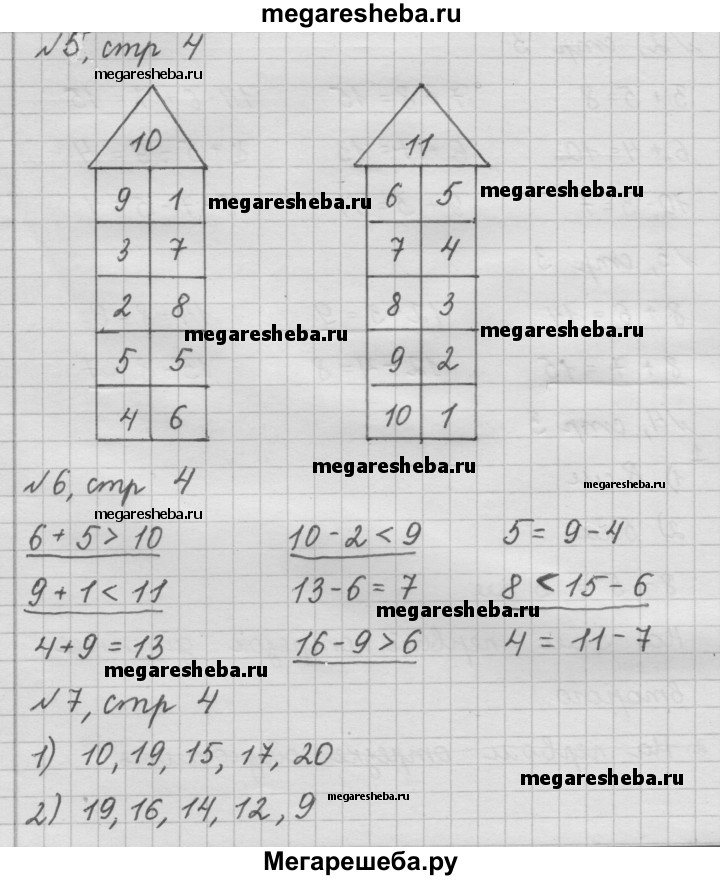 megaresheba.ru
№5, стр 4
megaresheba.ru
10
9 1
3 7
2 8
5 5
4 6
11
6 5
7 4
8 3
9 2
10 1
megaresheba.ru
megaresheba.ru
megaresheba.ru
megaresheba.ru
megaresheba.ru
№6, стр 4
megaresheba.ru
megaresheba.ru
6 + 5 > 10 10 - 2 < 9 5 = 9 - 4
9 + 1 < 11 13 - 6 = 7 8 < 15 - 6
megaresheba.ru
4 + 9 = 13 16 - 9 > 6 4 = 11 - 7
megaresheba.ru
№7, стр 4
1) 10, 19, 15, 17, 20
megaresheba.ru
2) 19, 16, 14, 12, 9
megaresheba.ru
Мегарешеба.ру